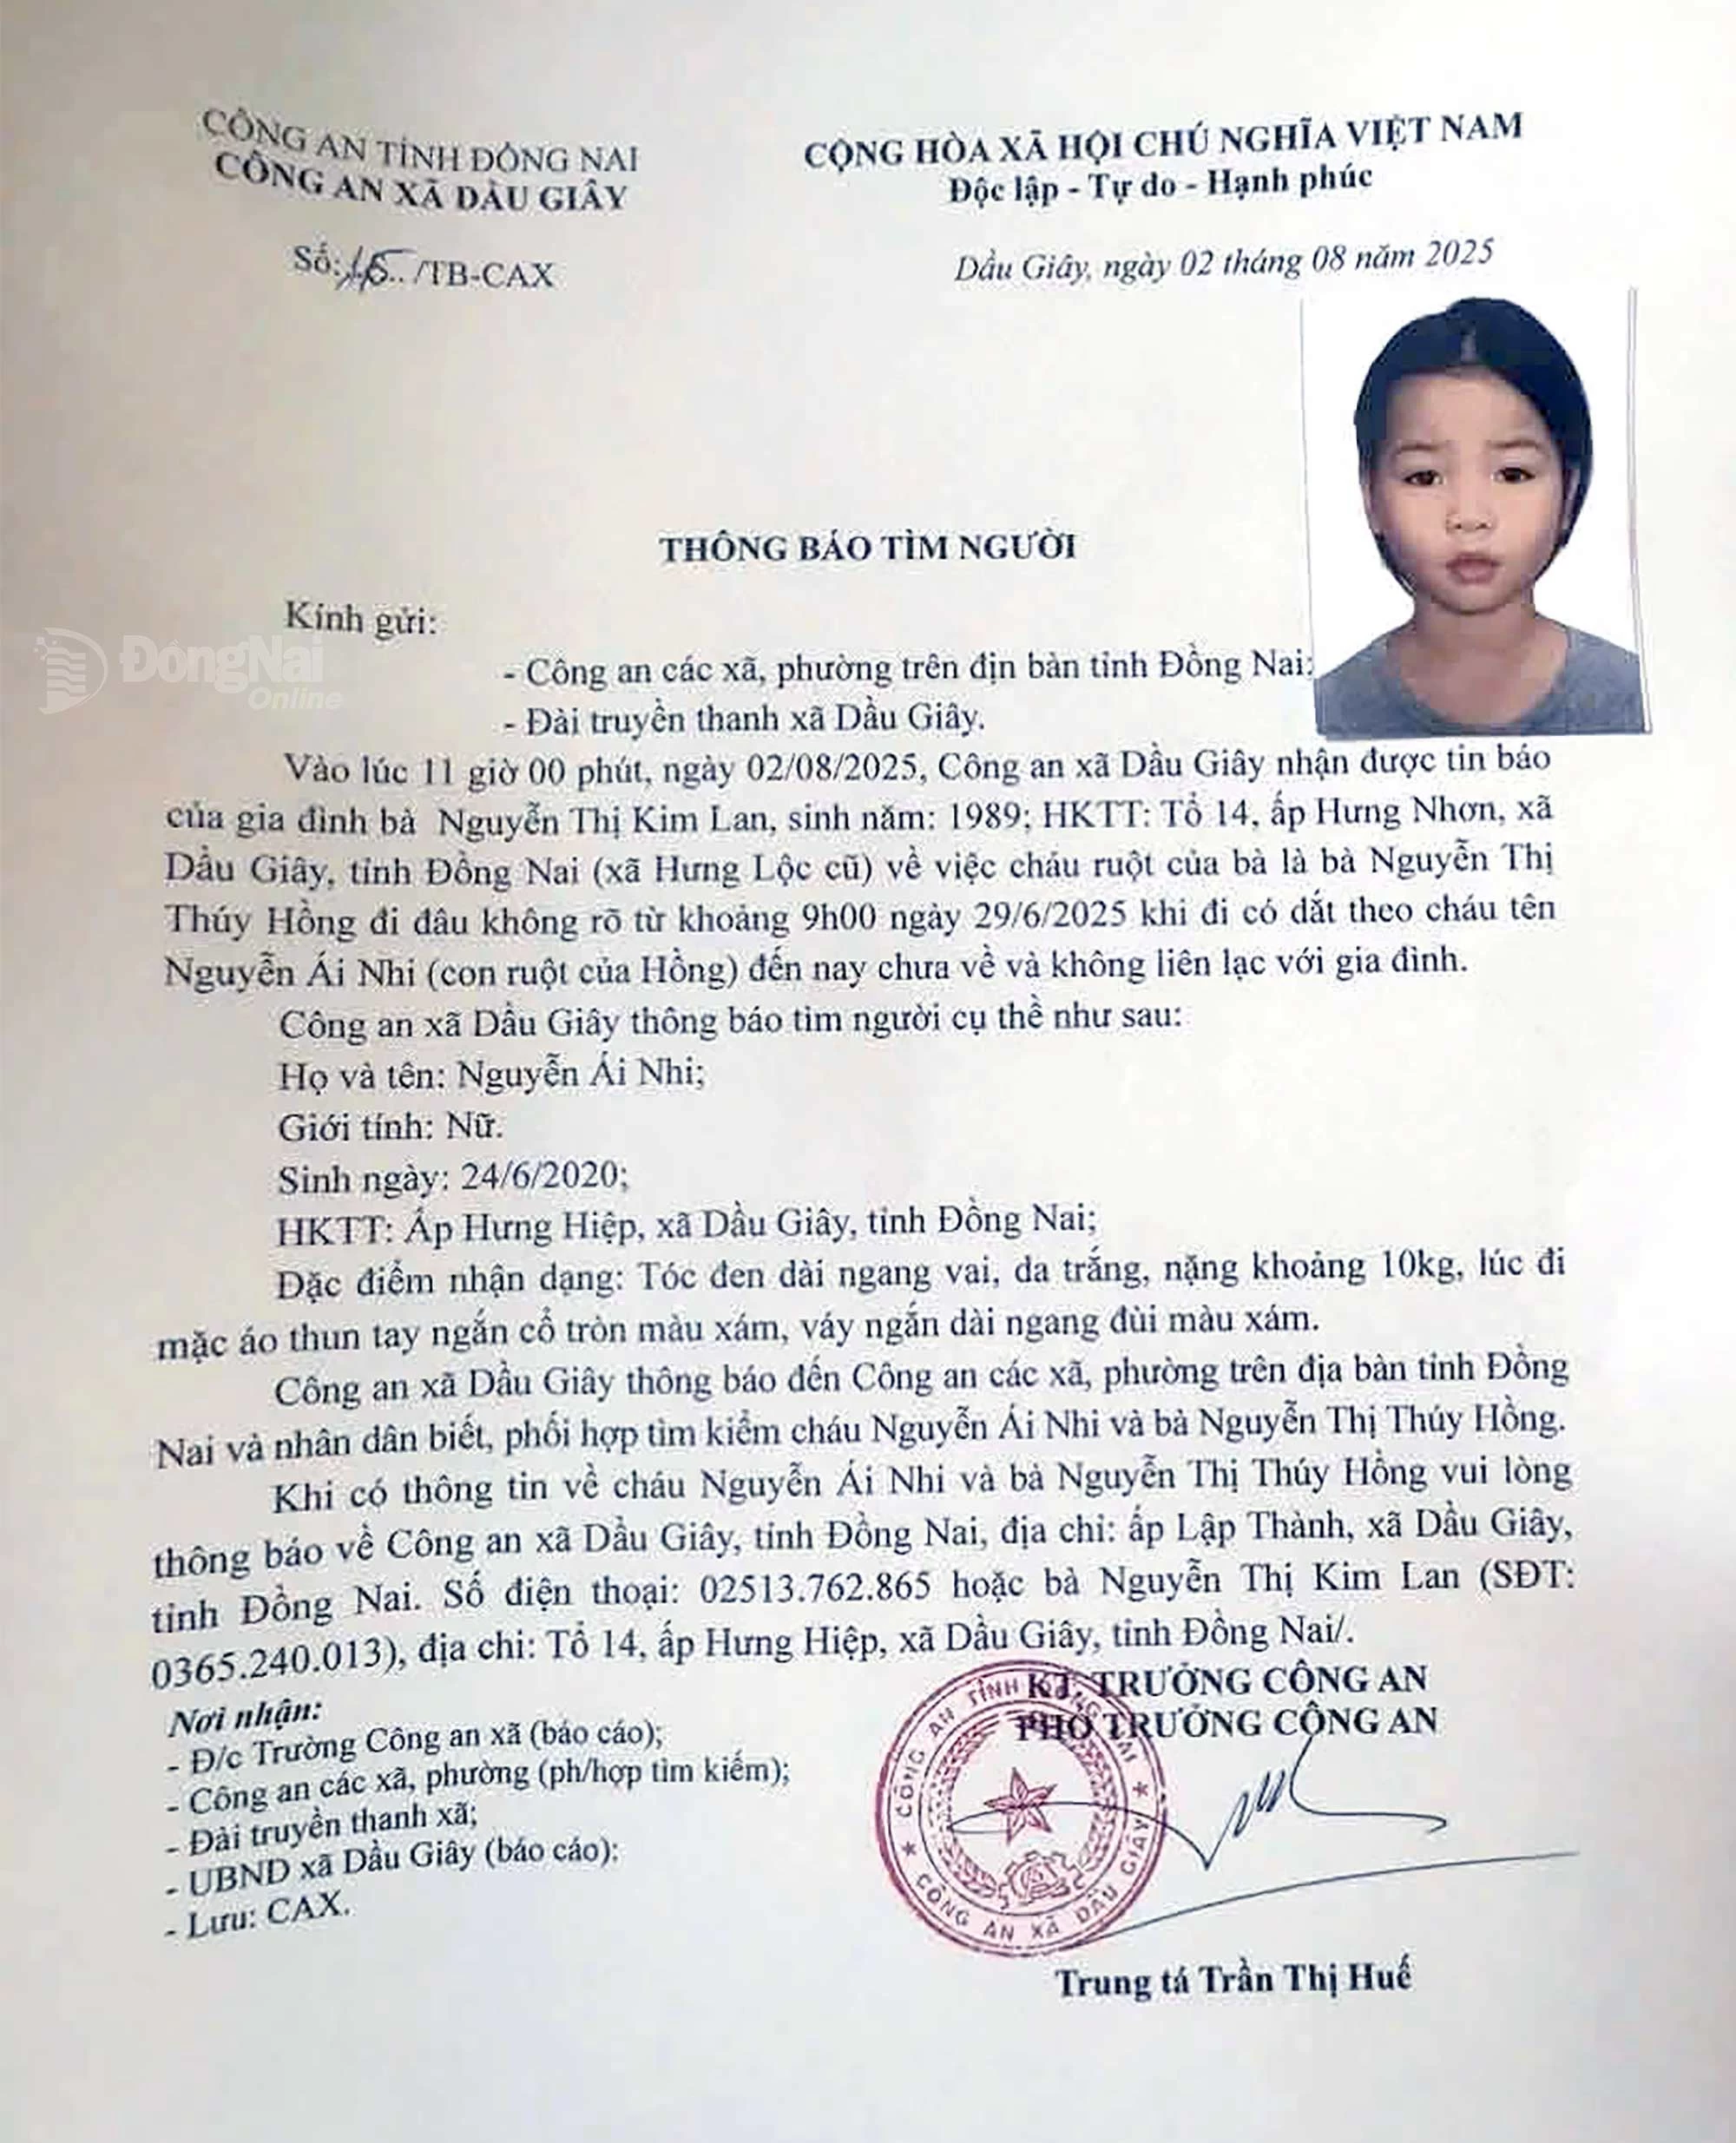 CÔNG AN TỈNH ĐỒNG NAI
CÔNG AN XÃ DẦU GIÂY
CỘNG HÒA XÃ HỘI CHỦ NGHĨA VIỆT NAM
Độc lập - Tự do - Hạnh phúc
Số: /TB-CAX
Dầu Giây, ngày 02 tháng 08 năm 2025
THÔNG BÁO TÌM NGƯỜI
Kính gửi:
ĐồngNai
Online
- Công an các xã, phường trên địn bàn tỉnh Đồng Nai;
- Đài truyền thanh xã Dầu Giây.
Vào lúc 11 giờ 00 phút, ngày 02/08/2025, Công an xã Dầu Giây nhận được tin báo
của gia đình bà Nguyễn Thị Kim Lan, sinh năm: 1989; HKTT: Tổ 14, ấp Hưng Nhơn, xã
Dầu Giây, tỉnh Đồng Nai (xã Hưng Lộc cũ) về việc cháu ruột của bà là bà Nguyễn Thị
Thúy Hồng đi đâu không rõ từ khoảng 9h00 ngày 29/6/2025 khi đi có dắt theo cháu tên
Nguyễn Ái Nhi (con ruột của Hồng) đến nay chưa về và không liên lạc với gia đình.
Công an xã Dầu Giây thông báo tìm người cụ thể như sau:
Họ và tên: Nguyễn Ái Nhi;
Giới tính: Nữ.
Sinh ngày: 24/6/2020;
HKTT: Ấp Hưng Hiệp, xã Dầu Giây, tỉnh Đồng Nai;
Đặc điểm nhận dạng: Tóc đen dài ngang vai, da trắng, nặng khoảng 10kg, lúc đi
mặc áo thun tay ngắn cổ tròn màu xám, váy ngắn dài ngang đùi màu xám.
Công an xã Dầu Giây thông báo đến Công an các xã, phường trên địa bàn tỉnh Đồng
Nai và nhân dân biết, phối hợp tìm kiếm cháu Nguyễn Ái Nhi và bà Nguyễn Thị Thúy Hồng.
Khi có thông tin về cháu Nguyễn Ái Nhi và bà Nguyễn Thị Thúy Hồng vui lòng
thông báo về Công an xã Dầu Giây, tỉnh Đồng Nai, địa chỉ: ấp Lập Thành, xã Dầu Giây,
tỉnh Đồng Nai. Số điện thoại: 02513.762.865 hoặc bà Nguyễn Thị Kim Lan (SĐT:
0365.240.013), địa chỉ: Tổ 14, ấp Hưng Hiệp, xã Dầu Giây, tỉnh Đồng Nai/.
Nơi nhận:
- Đ/c Trưởng Công an xã (báo cáo);
- Công an các xã, phường (ph/hợp tìm kiếm);
- Đài truyền thanh xã;
- UBND xã Dầu Giây (báo cáo):
- Lưu: CAX.
KT. TRƯỞNG CÔNG AN
PHÓ TRƯỞNG CÔNG AN
CÔNG AN TỈNH ĐỒNG NAI
CÔNG AN XÃ DẦU GIÂY
Trung tá Trần Thị Huế